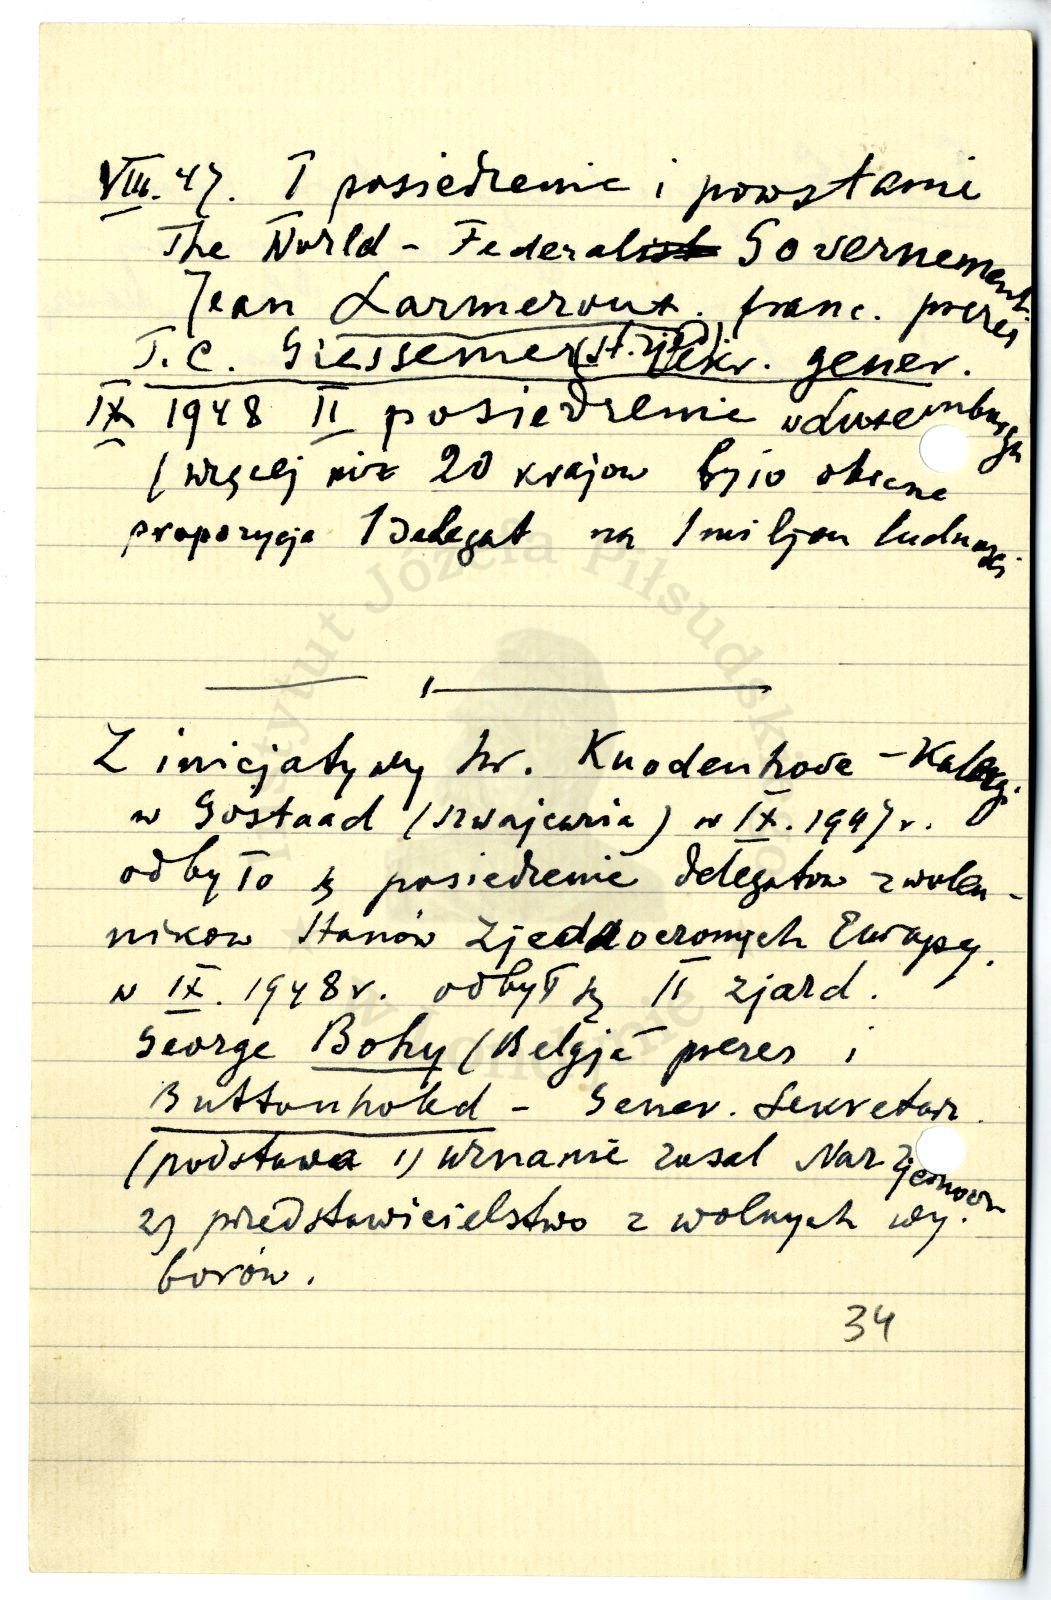 VIII. 47. I posiedzenie i powstanie
The World - Federalist Governement.
Jean Larmeroux. franc. prezes
J.C. Giessemer (St. Zj.) Sekr. gener.
IX 1948 II posiedzenie w Luxemburgu
(więcej niż 20 krajow było obecne
propozycja 1 Delegat na 1 miljon ludnosci
Z inicjatywy hr. Kuodenhove - Kalergi
w Göstaad (Szwajcaria) w IX. 1947 r.
odbyło się posiedzenie delegatow zwolen-
nikow Stanów Zjednoczonych Europy.
w IX. 1948 r. odbył się II zjazd.
George Bohy (Belgja prezes i
Buttonhold - Gener. Sekretarz.
(podstawa 1) uznanie zasad Nar. Zjednocz
2) przedstawicielstwo z wolnych wy-
borów.
34
Instytut Józefa Piłsudskiego
w Londynie